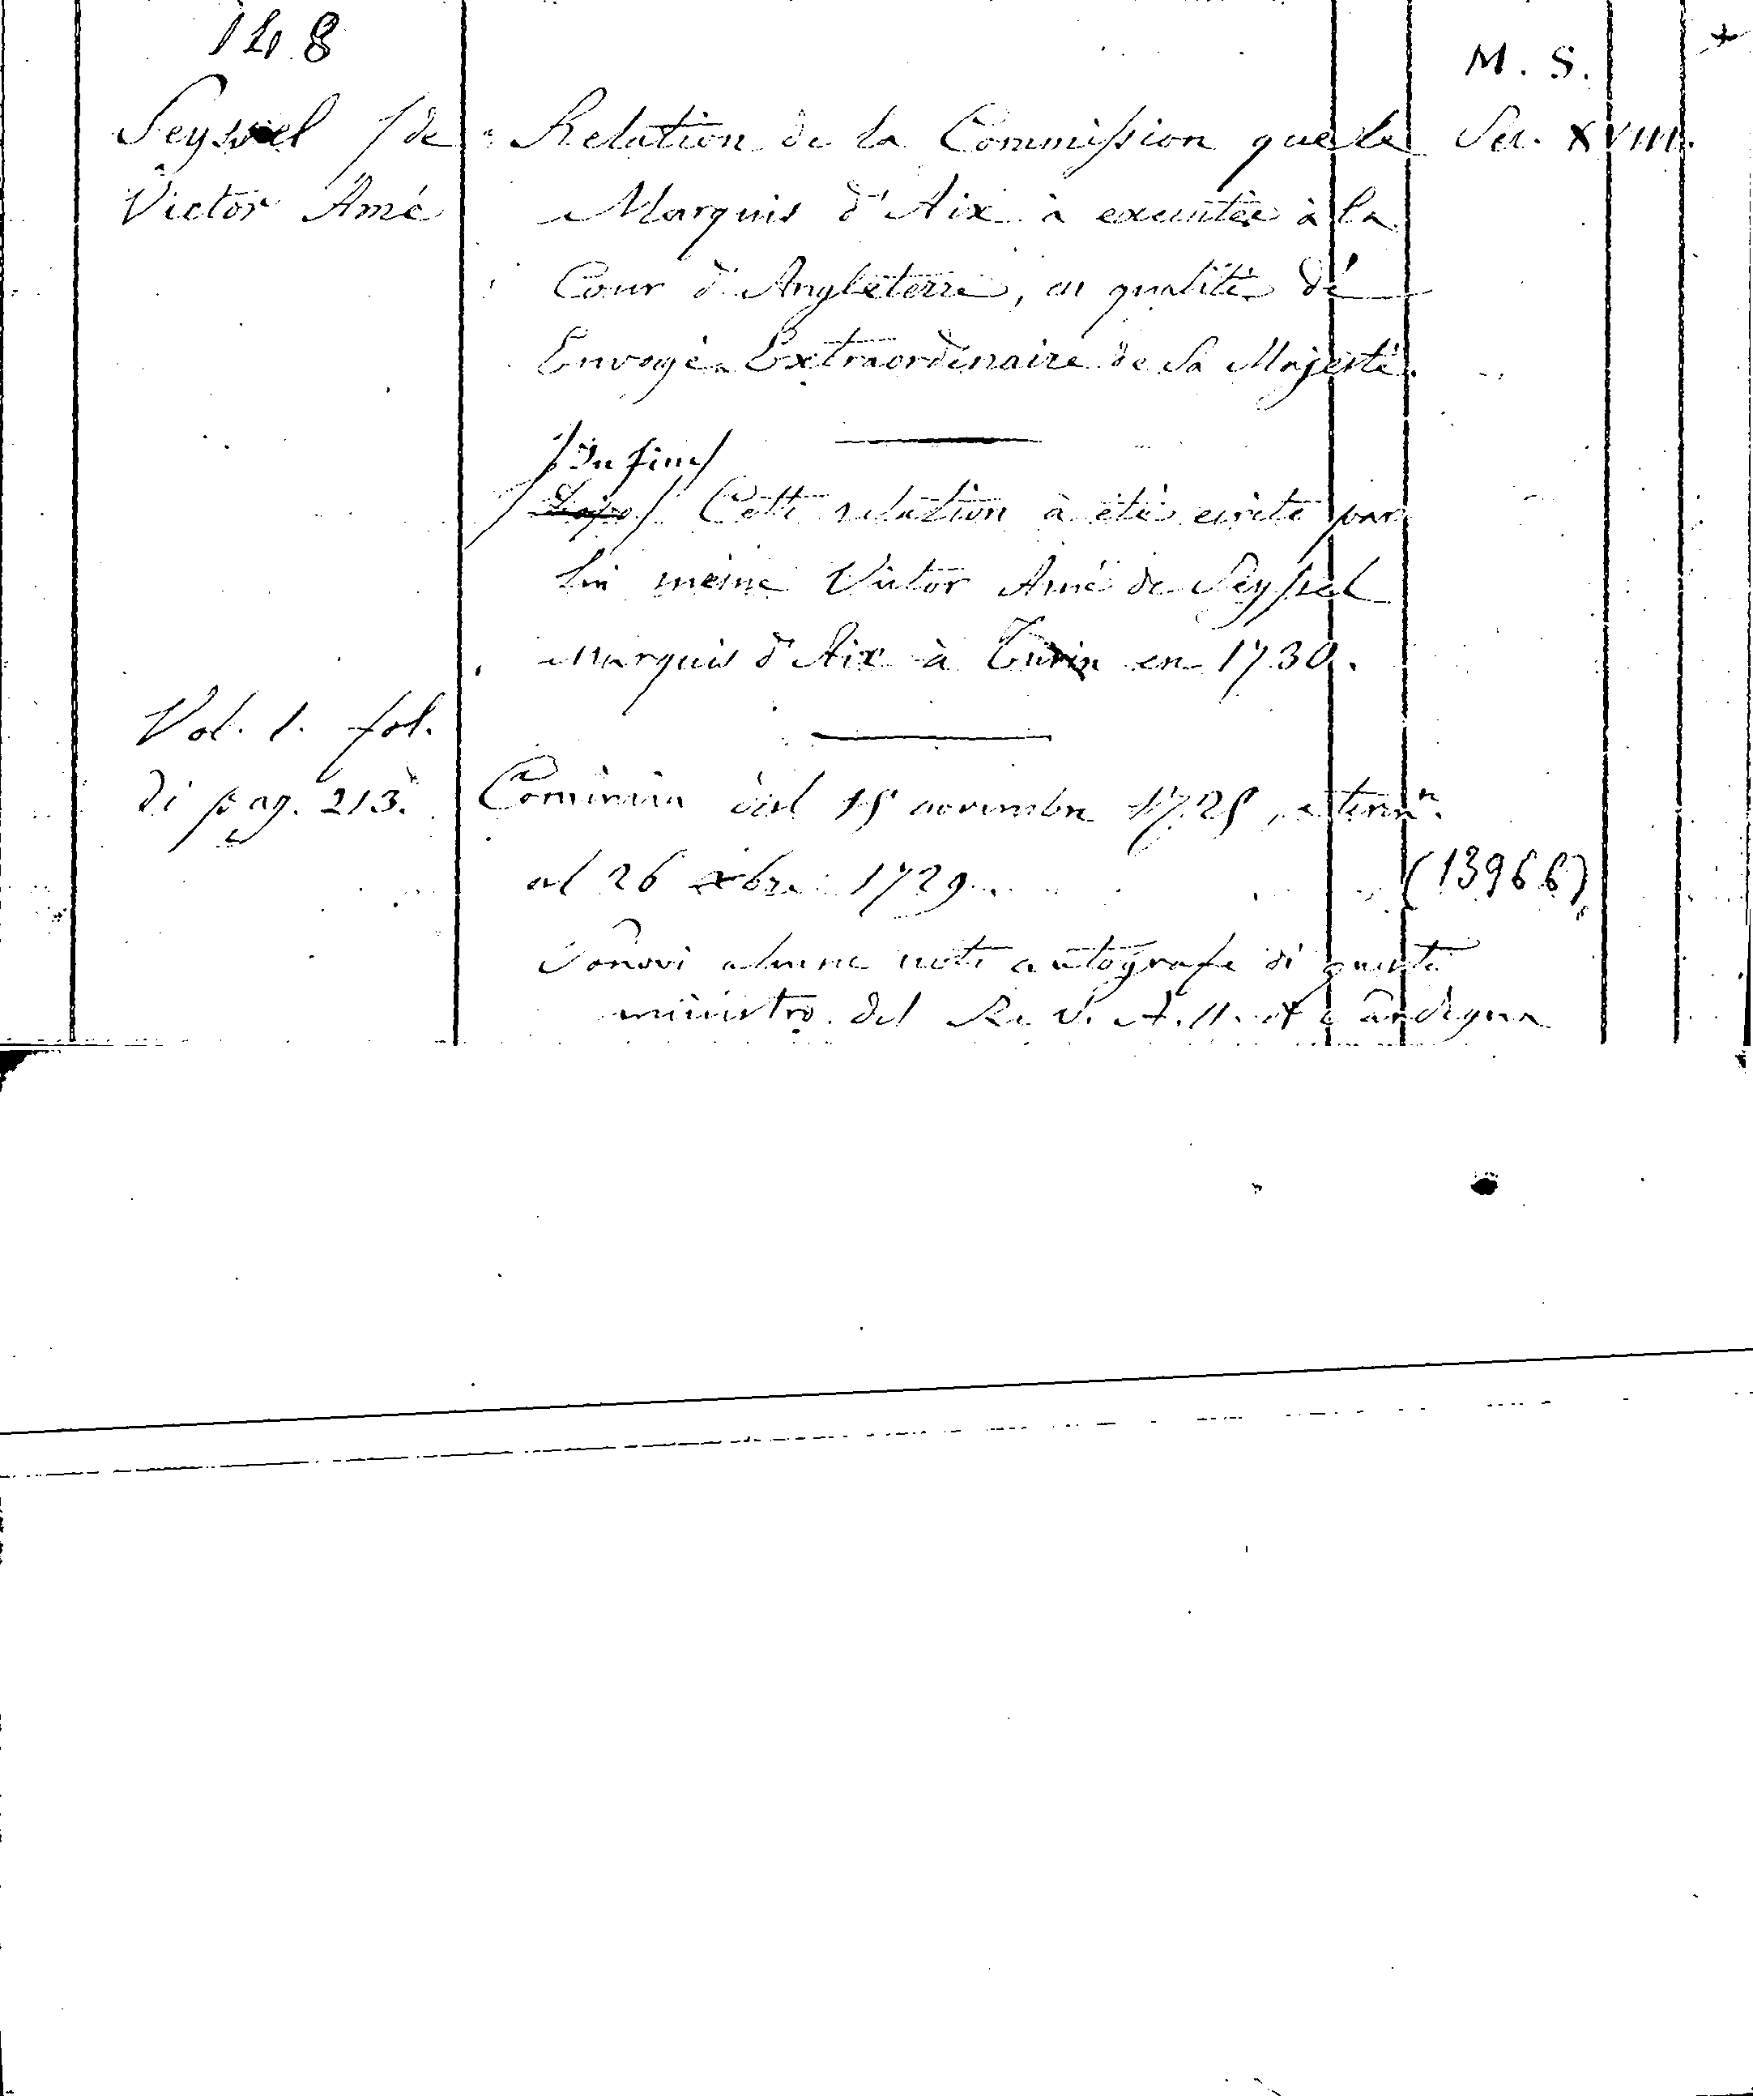 148
M. S.
Seyssel /de
Victor Amé
Relation de la Commission que le
Sec. XVIII.
Marquis d'Aix à executée à la
Cour d'Angleterre, en qualité de
Envoyé Extraordinaire de Sa Majesté.
/In fine/
/Dopo/ Cette relation à été ecrite par
lui meme Victor Amé de Seyssel
Marquis d'Aix à Turin en 1730.
Vol. 1. fol.
di pag. 213.
Comincia dal 15 novembre 1725, e termn.
al 26 xbre 1729.
(13966)
Sonovi alcune note autografe di questo
ministro del Re V. A. II. di Sardegna